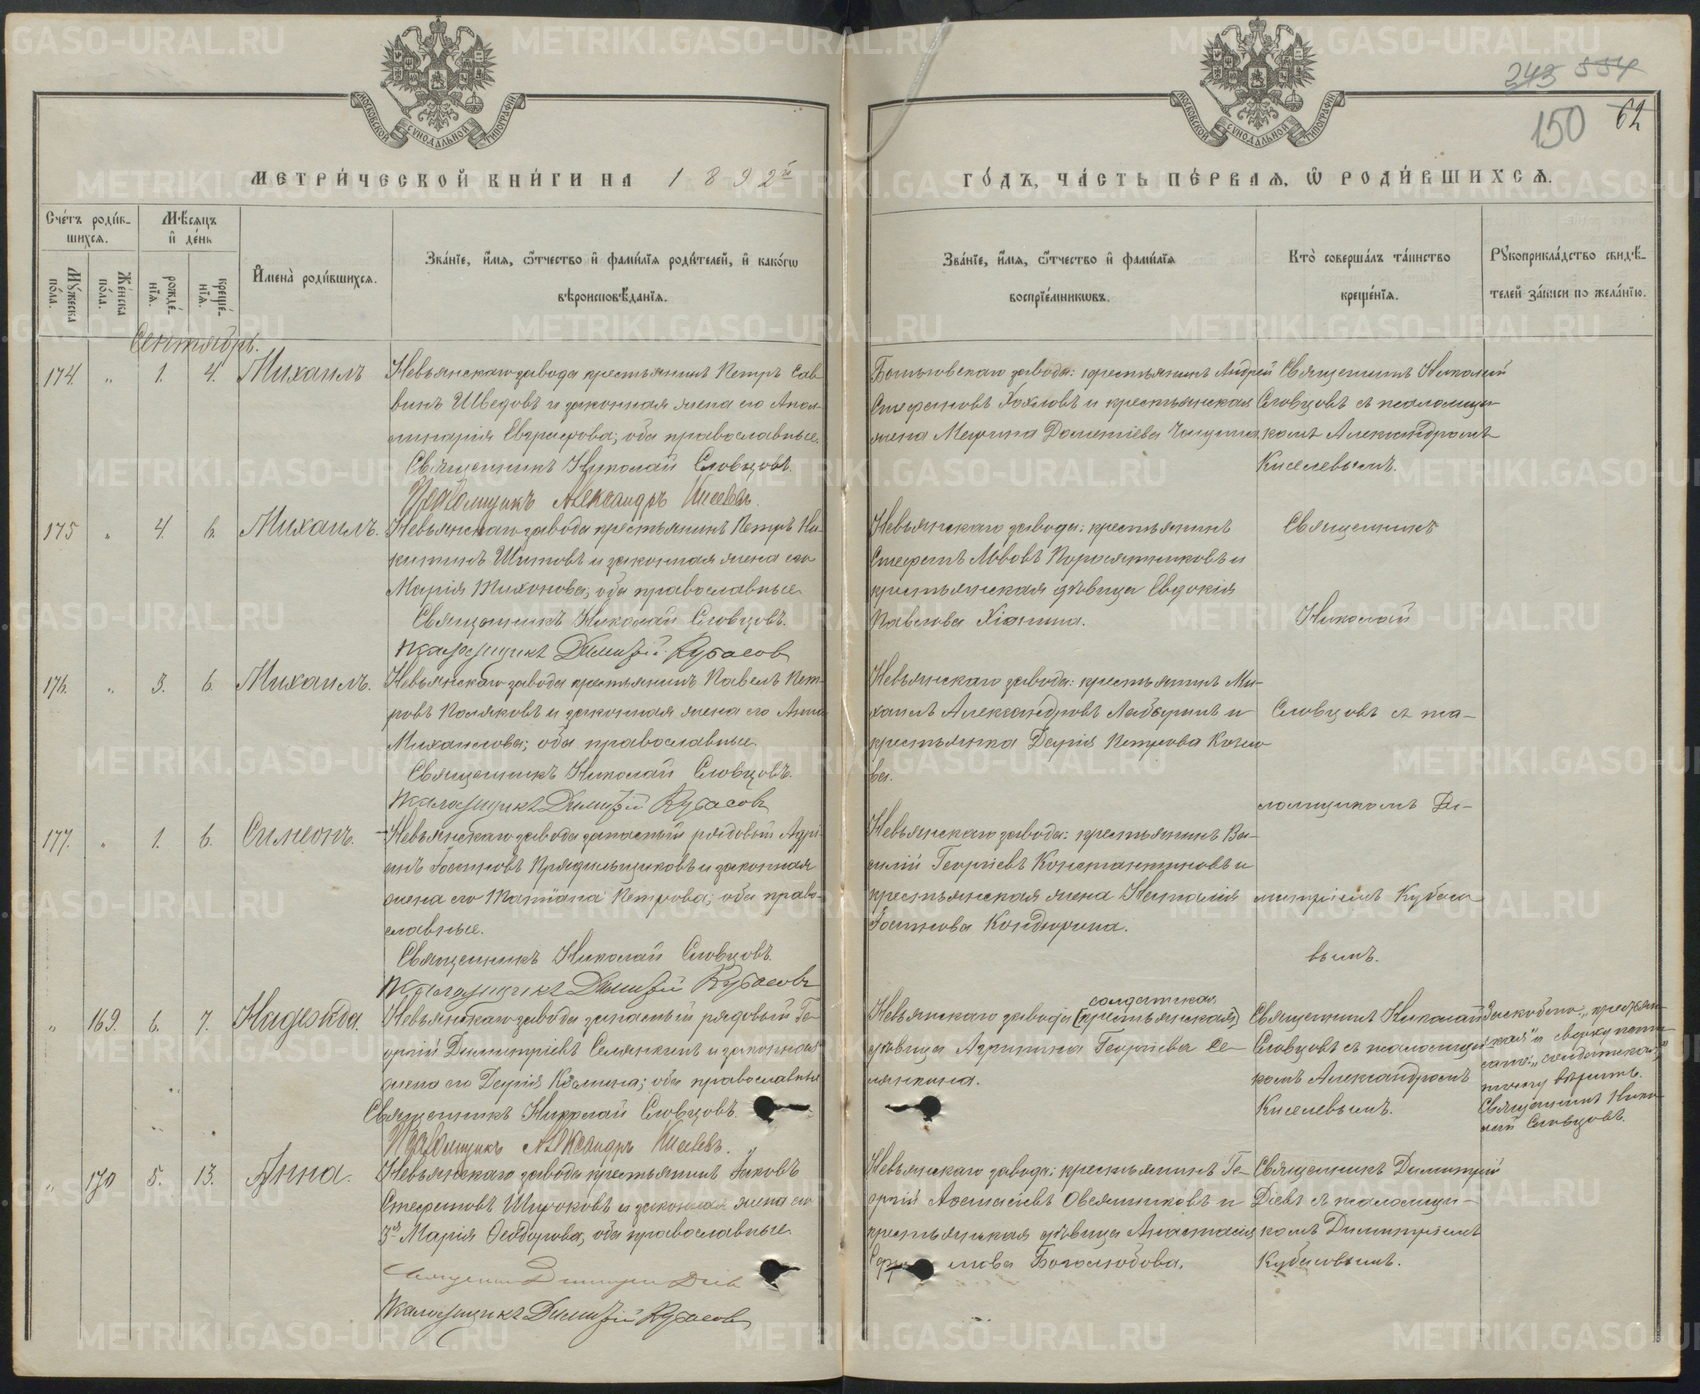 243 554
150 62
МОСКОВСКОЙ СУНОДАЛЬНОЙ ТИПОГРАФІИ
МОСКОВСКОЙ СУНОДАЛЬНОЙ ТИПОГРАФІИ
МЕТРИ́ЧЕСКОЙ КНИ́ГИ НА 1892й
ГО́ДЪ, ЧА́СТЬ ПЕ́РВАЯ, Ѿ РОДИ́ВШИХСЯ.
Сче́тъ роди́в-
шихся.
Му́жеска по́ла.
Же́нска по́ла.
Мѣ́сяцъ
и де́нь
рожде́-
нія.
креще́-
нія.
Имена̀ роди́вшихся.
Зва́ніе, и́мя, ѻ́тчество и фами́лія роди́телей, и како́гѡ
вѣроисповѣ́данія.
Зва́ніе, и́мя, ѻ́тчество и фами́лія
воспріе́мникѡвъ.
Кто̀ соверша́лъ та́инство
креще́нія.
Рꙋкоприкла́дство свидѣ́-
телей за́писи по жела́нію.
Сентябрь.
174. " 1. 4. Михаилъ
Невьянскаго завода крестьянинъ Петръ Сав-
винъ Шведовъ и законная жена его Апол-
линарія Евграфова; оба православные.
Священникъ Николай Словцовъ.
Псаломщикъ Александръ Киселевъ.
Стефановъ Хохловъ и крестьянская
жена Дометіева
Священникъ Николай
Словцовъ съ псаломщи-
комъ Александромъ
Киселевымъ.
175 " 4. 6. Михаилъ.
Невьянскаго завода крестьянинъ Петръ Ни-
китинъ Шитовъ и законная жена его
Марія Тихонова; оба православные
Священникъ Николай Словцовъ.
Псаломщикъ Димитрій Кубасов
Невьянскаго завода: крестьянинъ
Стефанъ Львовъ и
крестьянская дѣвица Евдокія
Павлова
Священникъ
Николай
176. " 3. 6. Михаилъ.
Невьянскаго завода крестьянинъ Павелъ Пет-
ровъ Поляковъ и законная жена его Анна
Михаилова; оба православные.
Священникъ Николай Словцовъ.
Псаломщикъ Димитрій Кубасовъ
Невьянскаго завода: крестьянинъ Ми-
хаилъ Александровъ и
крестьянка Дарія Петрова Козло-
ва.
Словцовъ съ пса-
ломщикомъ Ди-
177. " 1. 6. Симеонъ.
Невьянскаго завода запасный рядовый Адрі-
анъ Прядильщиковъ и законная
жена его Татіана Петрова; оба право-
славные.
Священникъ Николай Словцовъ.
Псаломщикъ Димитрій Кубасовъ
Невьянскаго завода: крестьянинъ Ва-
силій Георгіевъ Константиновъ и
крестьянская жена Наталія
Кондюрина.
митріемъ Кубасо
вымъ.
" 169. 6. 7. Надежда.
Невьянскаго завода запасный рядовый Ге-
оргій Димитріевъ Селянкинъ и законная
жена его Дарія Козмина; оба православные
Священникъ Николай Словцовъ.
Псаломщикъ Александръ Киселевъ.
солдатская
Невьянскаго завода (крестьянская)
дѣвица Георгіева Се-
лянкина.
Священникъ Николай
Словцовъ съ псаломщи-
комъ Александромъ
Киселевымъ.
Заскоблено: „крестьян-
ская" и сверху напи-
сано: „солдатская";
тому вѣрить.
Священникъ Нико-
лай Словцовъ.
" 170 5. 13. Анна.
Невьянскаго завода крестьянинъ Іаковъ
Стефановъ Широковъ и законная жена его
Марія Ѳеодорова; оба православные.
Священникъ Димитрій Діевъ
Псаломщикъ Димитрій Кубасовъ
Невьянскаго завода: крестьянинъ Ге-
оргій Овсянниковъ и
крестьянская дѣвица Анастасія
Боголюбова.
Священникъ Димитрій
Діевъ съ псаломщи-
комъ Димитріемъ
Кубасовымъ.
METRIKI.GASO-URAL.RU